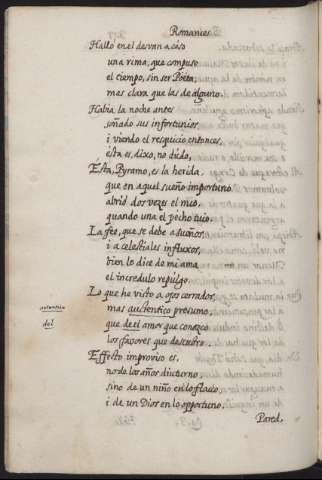 Romances
Hallò en el desvan a càso
una rima, que compuso
el tiempo, sin ser Poèta,
mas clara que las de alguno.
Habia la noche antes
soñado sus infortunios,
i viendo el resquicio entonces,
ésta es, dixo, no dùdo,
Esta, Pyramo, es la herida
que en aquel sueño importuno
abriò dos vezes el mio,
quando una el pecho tuio.
La feè, que se debe a sueños,
i a celestiales influxos,
bien lo dice de mi ama
el incredulo repulgo.
Lo que he visto a ojos cerrados,
autentico
mas auctentico presumo,
del
que de el amor que conozco
los favores que descubro.
Effecto improviso es,
no de los años diuturno,
sino de un niño en lo flaco,
i de un Dios en lo opportuno.
Pared,